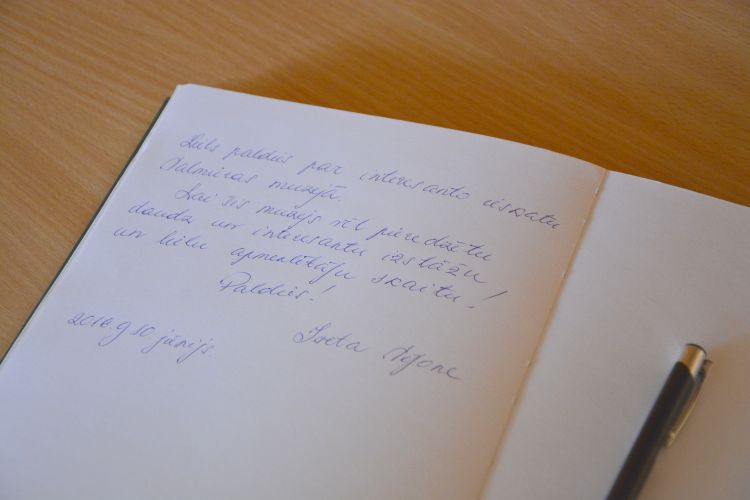 Liels paldies par interesanto ieskatu
Valmieras muzejā.
Lai šis muzejs vēl pieredzētu
daudz un interesantu izstāžu
un lielu apmeklētāju skaitu!
Paldies!
g 10 jūnijs
Iveta